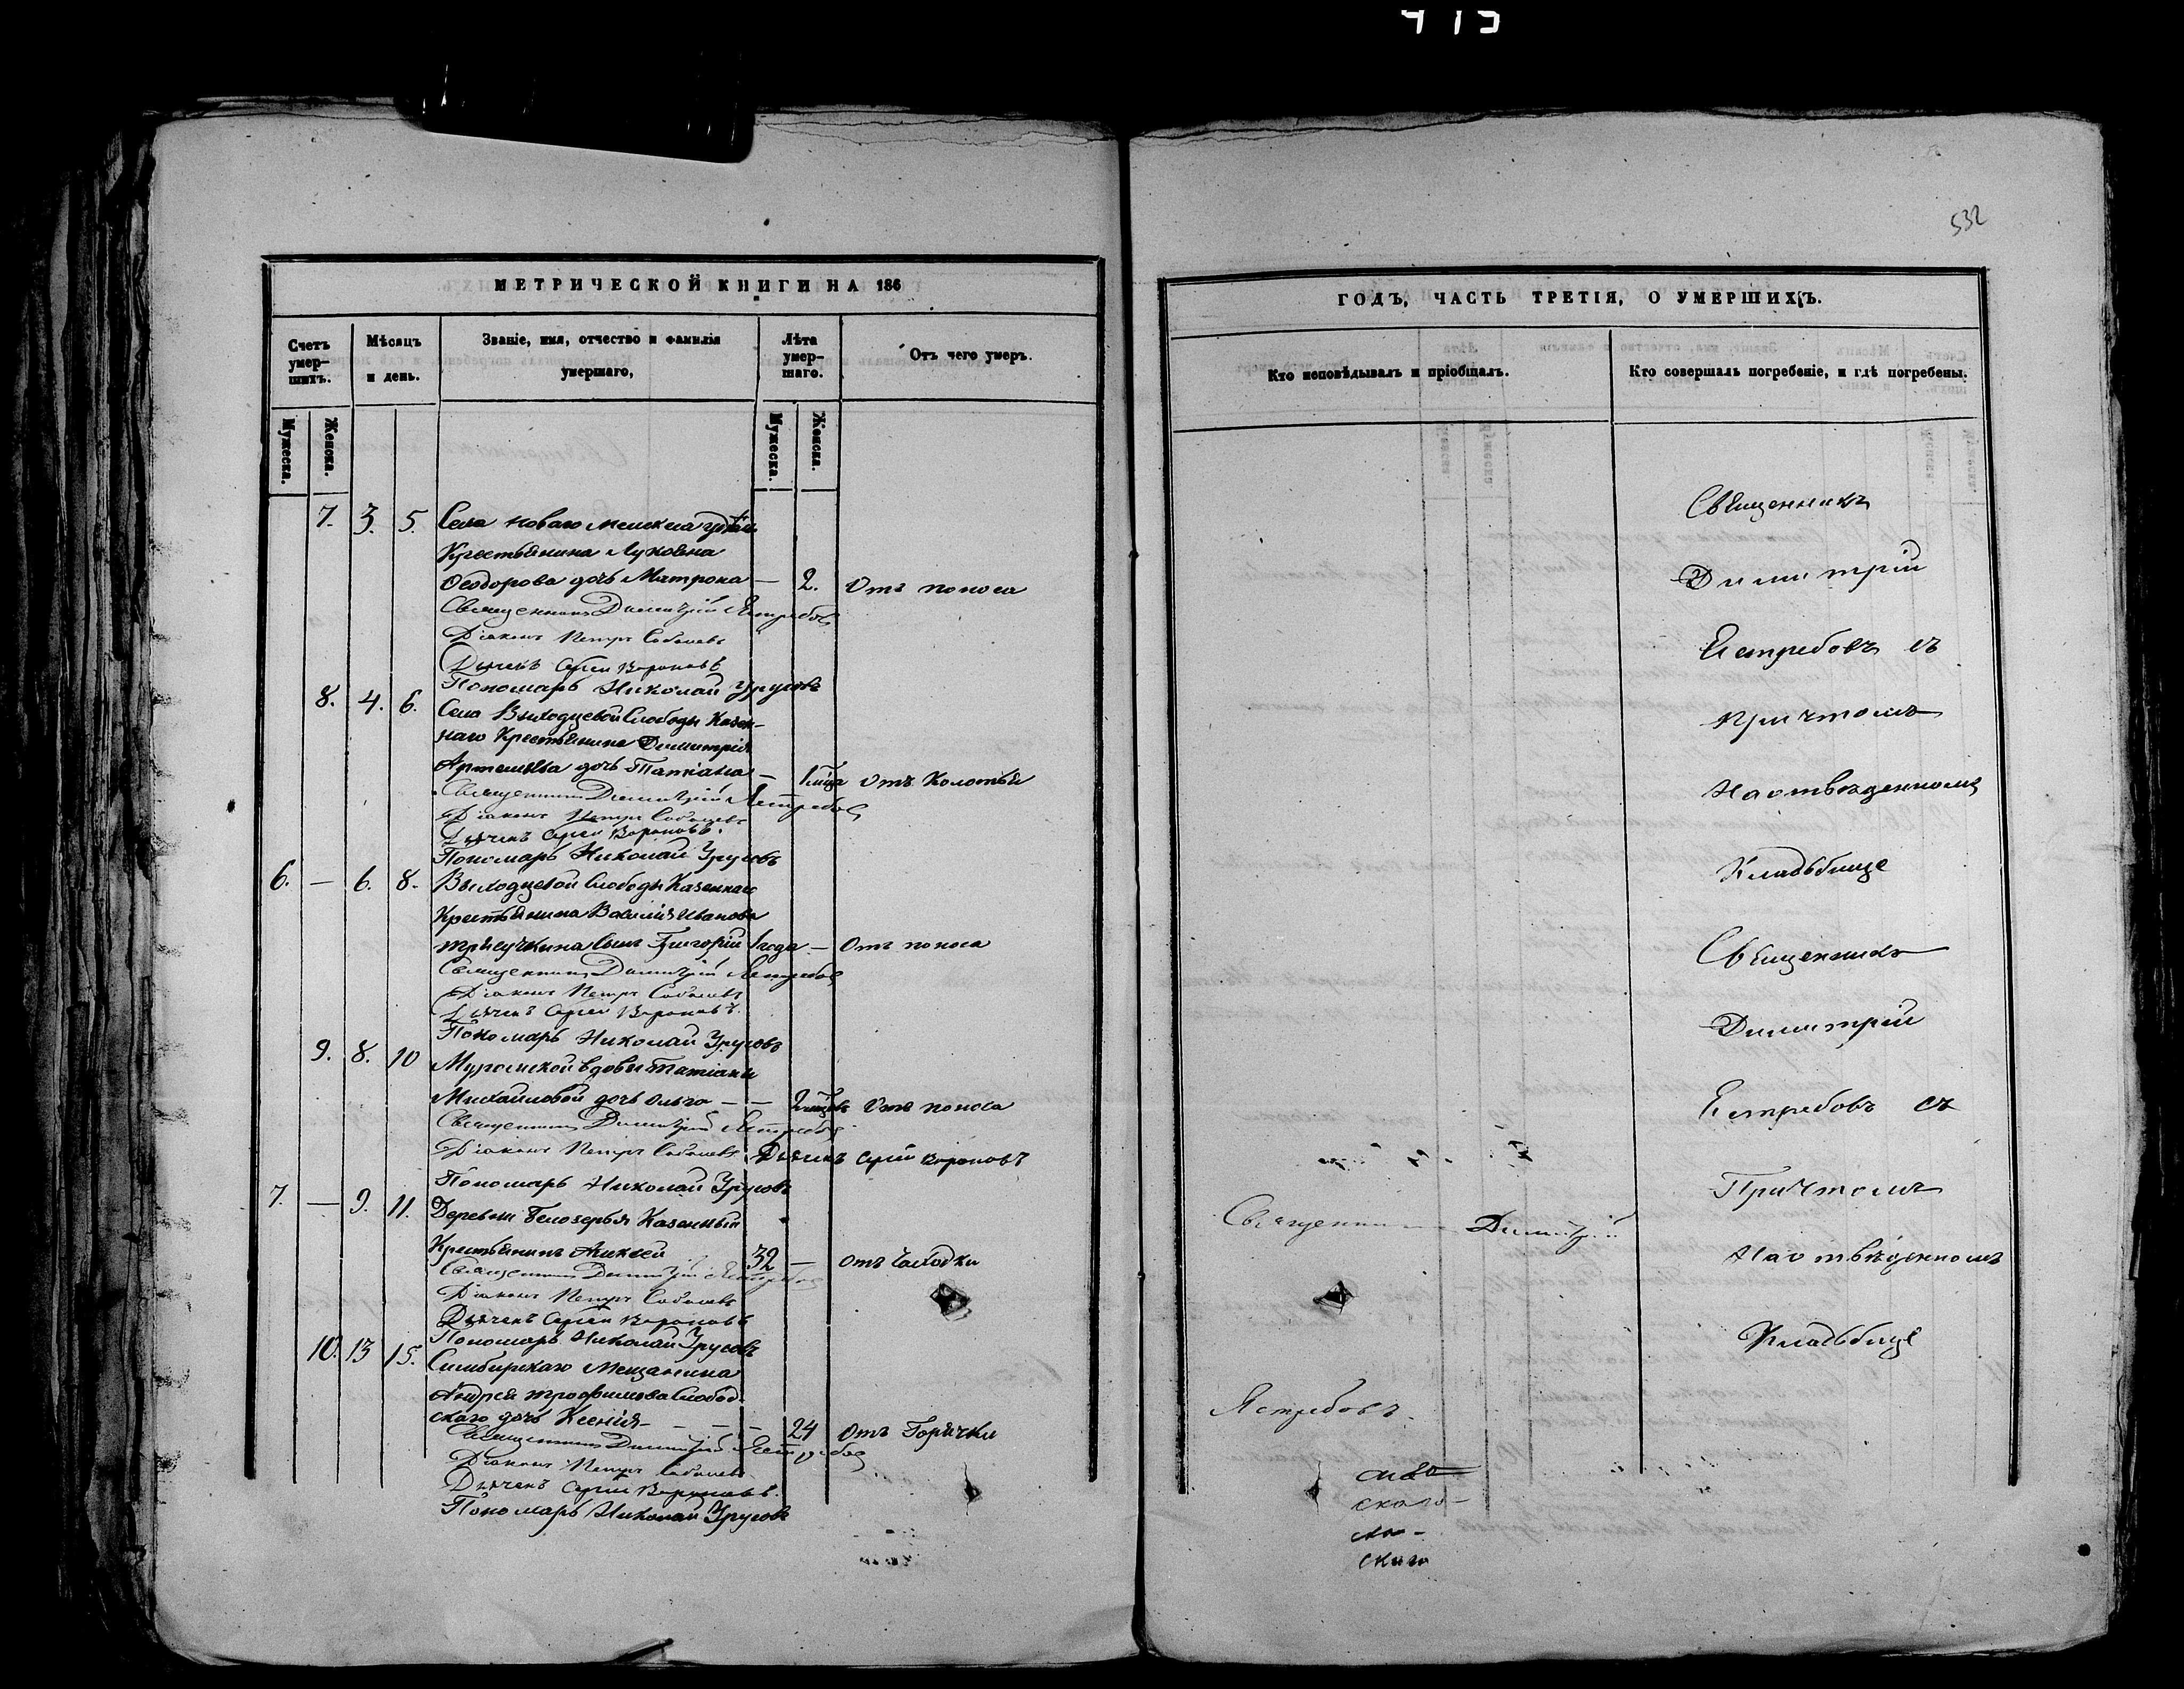 532
МЕТРИЧЕСКОЙ КНИГИ НА 186
Счетъ умер-шихъ.
Мѣсяцъ и день.
Званіе, имя, отчество и фамилія умершаго,
Лѣта умер-шаго.
Отъ чего умеръ.
Мужеска.
Женска.
Мужеска.
Женска.
7. 3. 5. Села Новаго
Крестьянина Луконна
Ѳеодорова дочь Матрона — 2. Отъ поноса
Священникъ Димитрій Ястребовъ
Діаконъ Петръ Соболевъ
Дьячекъ Сергей Вороновъ
Пономарь Николай Урусовъ
8. 4. 6. Села Выходцевой Слободы Казен-
наго Крестьянина Димитрія
Артемьева дочь Татіана — 1 мѣца Отъ Колотья
Священникъ Димитрій Ястребовъ
Діаконъ Петръ Соболевъ
Дьячекъ Сергей Вороновъ.
Пономарь Николай Урусовъ
6. — 6. 8. Выходцевой Слободы Казеннаго
Крестьянина Василія Иванова
сынъ Григорій 1 года — Отъ поноса
Священникъ Димитрій Ястребовъ
Діаконъ Петръ Соболевъ
Дьячекъ Сергей Вороновъ.
Пономарь Николай Урусовъ
9. 8. 10 Муромской вдовы Татіаны
Михайловой дочь Ольга — — 2 мѣцевъ Отъ поноса
Священникъ Димитрій Ястребовъ
Діаконъ Петръ Соболевъ Дьячекъ Сергей Вороновъ
Пономарь Николай Урусовъ
7. — 9. 11. Деревни Белозерья Казенный
Крестьянинъ Алексей 32 — Отъ Чахотки
Священникъ Димитрій Ястребовъ
Діаконъ Петръ Соболевъ
Дьячекъ Сергей Вороновъ
Пономарь Николай Урусовъ
10. 13 15. Симбирскаго Мещанина
Андрея Трофимова Слобод-
скаго дочь Ксенія — — — — 24 Отъ Горячки
Священникъ Димитрій Ястребовъ
Діаконъ Петръ Соболевъ
Дьячекъ Сергей Вороновъ.
Пономарь Николай Урусовъ
ГОДЪ, ЧАСТЬ ТРЕТІЯ, О УМЕРШИХЪ.
Кто исповѣдывалъ и пріобщалъ.
Кто совершалъ погребеніе, и гдѣ погребены.
Священникъ
Димитрій
Ястребовъ съ
Причтомъ
На отвѣденномъ
Кладьбище
Священникъ
Димитрій
Ястребовъ съ
Причтомъ
На отвѣденномъ
Кладьбище
Священникъ Димитрій
Ястребовъ.
скаго